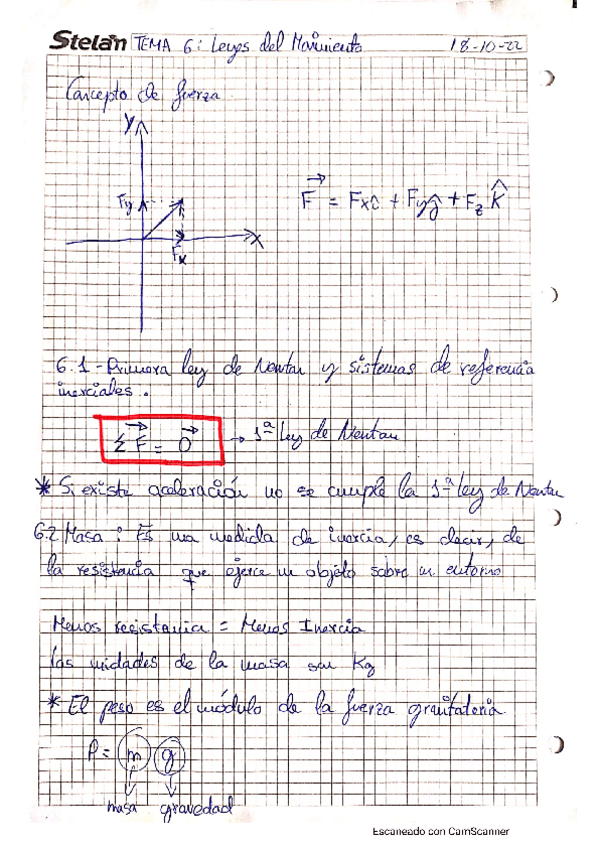 Stelan TEMA 6: Leyes del Movimiento 18-10-22
Concepto de fuerza
Y
Fy
X
Fx
F = Fx î + Fy ĵ + Fz K̂
6.1 - Primera ley de Newton y sistemas de referencia
inerciales.
Σ F = 0 → 1ª Ley de Newton
* Si existe aceleración no se cumple la 1ª ley de Newton
6.2 Masa: Es una medida de inercia, es decir, de
la resistencia que ejerce un objeto sobre un entorno
Menos resistencia = Menos Inercia
las unidades de la masa son Kg
* El peso es el módulo de la fuerza gravitatoria
P = m g
masa gravedad
Escaneado con CamScanner